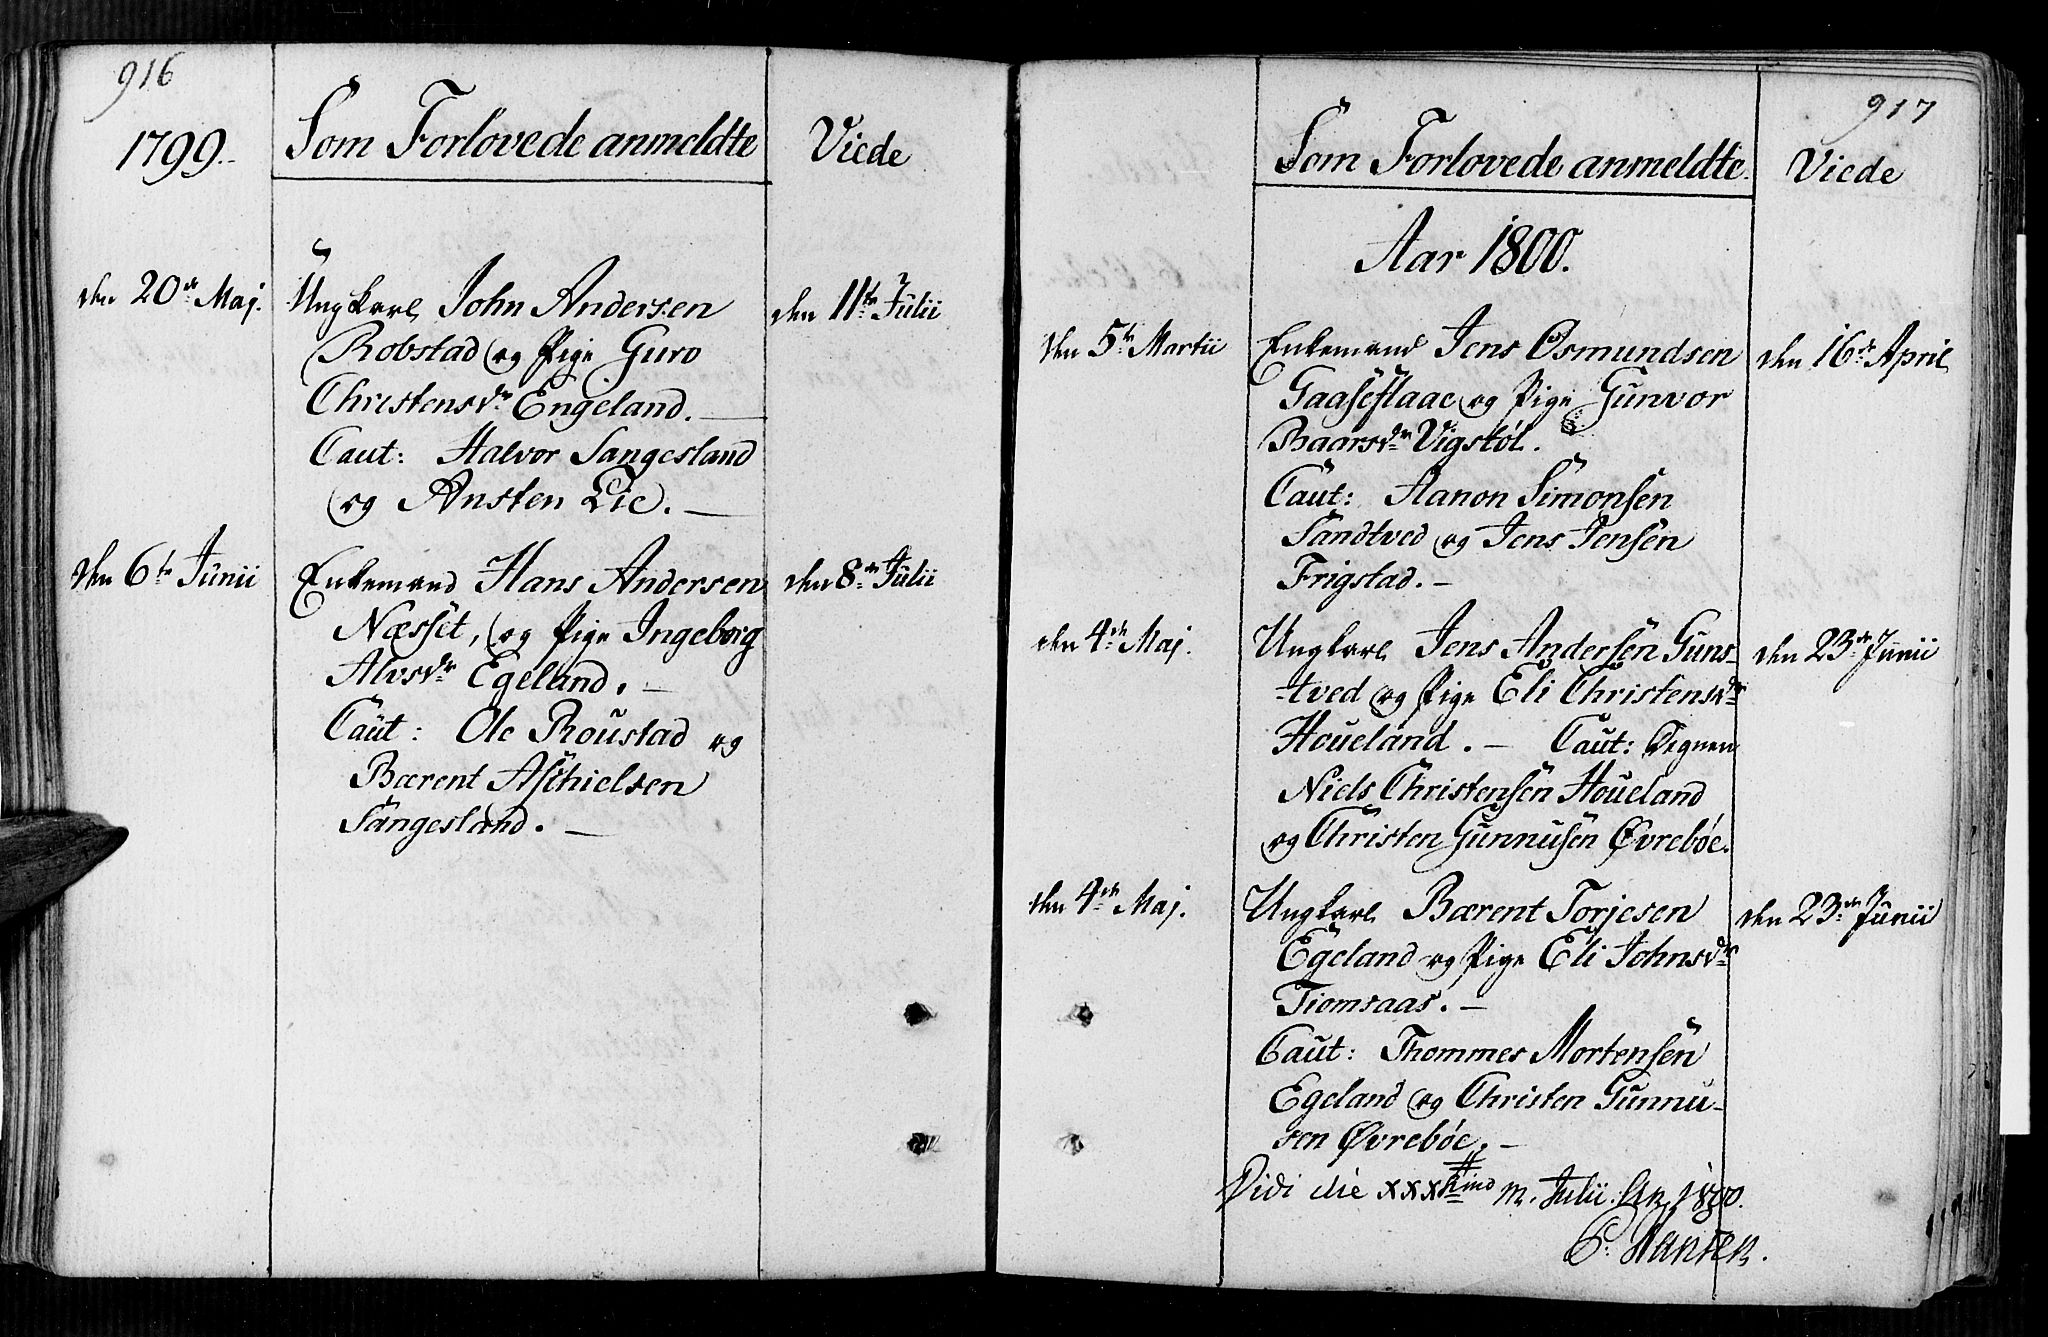 916
1799.
Som Forlovede anmeldte
Viede
den 20de Maj.
Ungkarl John Andersen
Robstad og Pige Guro
Christensdr Engeland. —
Caut: Halvor Sangesland
og Ansten Lie. —
den 11te Julii
den 6te Junii
Enkemand Hans Andersen
Næsset, og Pige Ingeborg
Alvsdr Egeland. —
Caut: Ole Roustad og
Bærent Aschielsen
Sangesland. —
den 8de Julii
917
Som Forlovede anmeldte
Viede
Aar 1800.
den 5te Martii
Enkemand Jens Osmundsen
Gaaseflaae og Pige Gunvor
Baarsdr Vigstøl.
Caut: Aanon Simonsen
Sandtved og Jens Jensen
Frigstad. —
den 16de April
den 4de Maj.
Ungkarl Jens Andersen Guns-
-tved og Pige Eli Christensdr
Houeland. — Caut: Degnen
Niels Christensen Houeland
og Christen Gunnusen Øvrebøe.
den 23de Junii
den 4de Maj.
Ungkarl Bærent Torjesen
Egeland og Pige Eli Johnsdr
Tiomsaas. —
Caut: Thommes Mortensen
Egeland og Christen Gunnu-
sen Øvrebøe. —
den 23de Junii
Vidi die m. Julii. An. 1800.
P: Hansen.